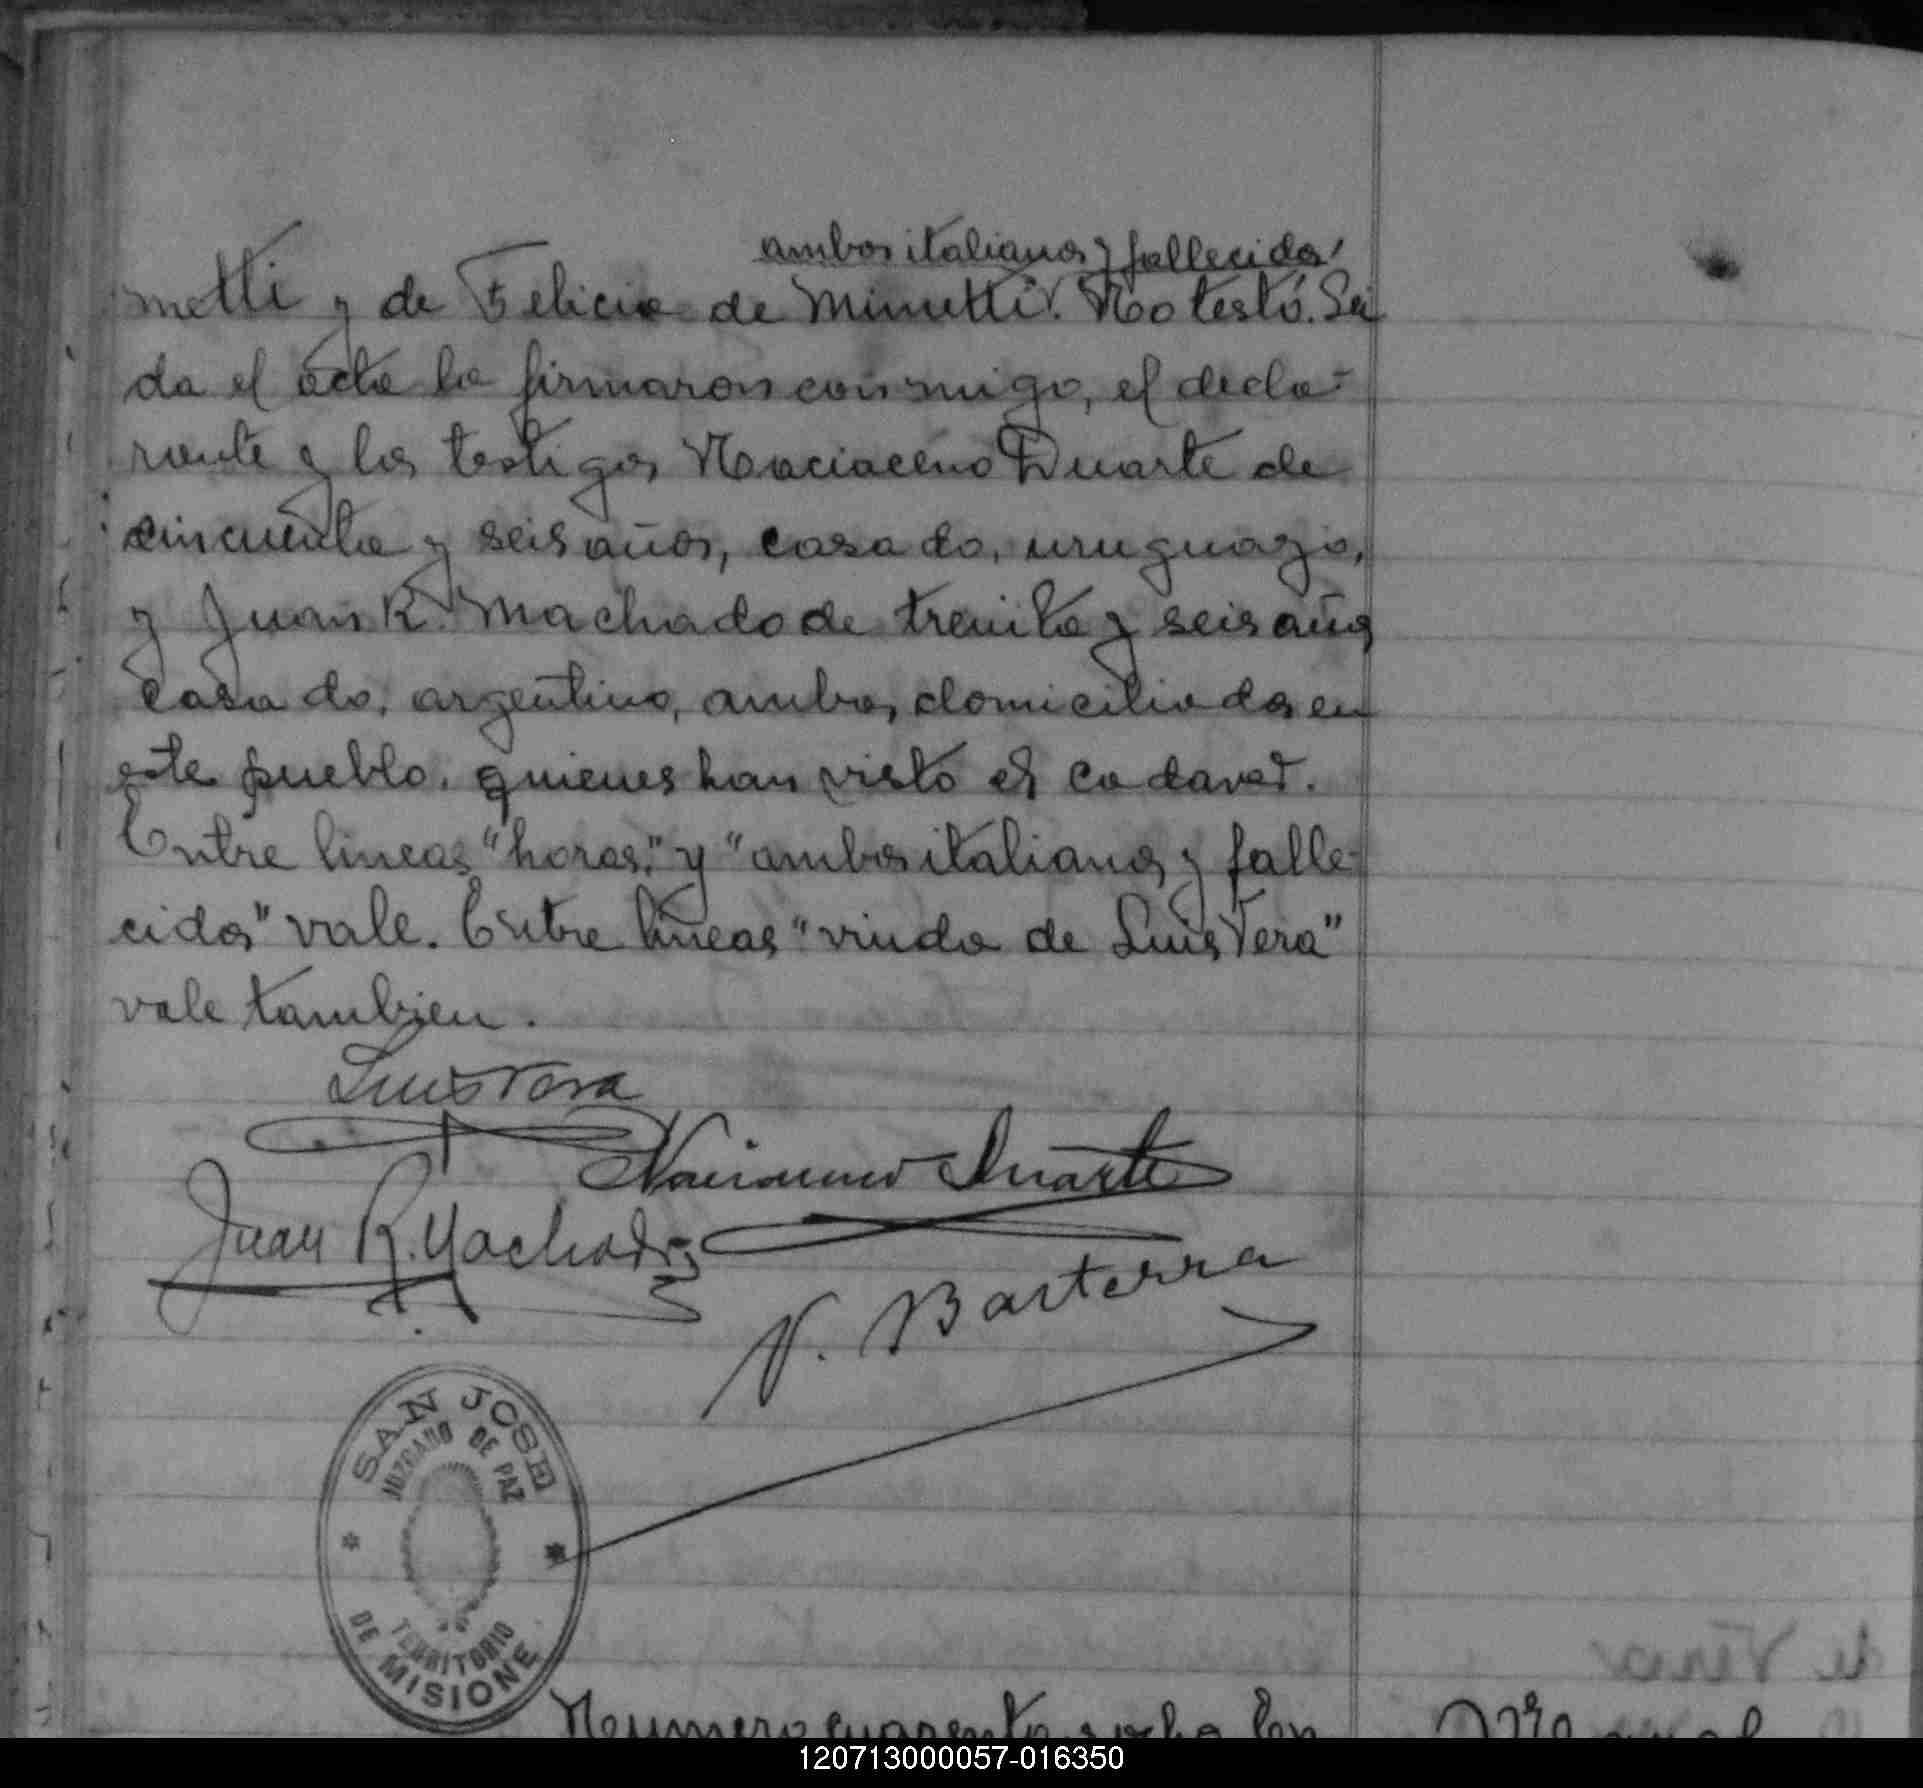 ambos italianos y fallecidos
metti y de Felicia de Minetti. No testó. Lei
da el acta la firmaron conmigo, el decla-
rante y los testigos Naciaceno Duarte de
cincuenta y seis años, casado, uruguayo,
y Juan R. Machado de treinta y seis años
casado, argentino, ambos domiciliados en
este pueblo. quienes han visto el cadaver.
Entre lineas "horas," y "ambos italianos y falle-
cidos" vale. Entre lineas "viuda de Luis Vera"
vale tambien.
Luis Vera
Duarte
Juan R. Machado
N. Basterra
SAN JOSE
JUZGADO DE PAZ
TERRITORIO
DE MISIONE
Numero cuarenta y ocho En
120713000057-016350